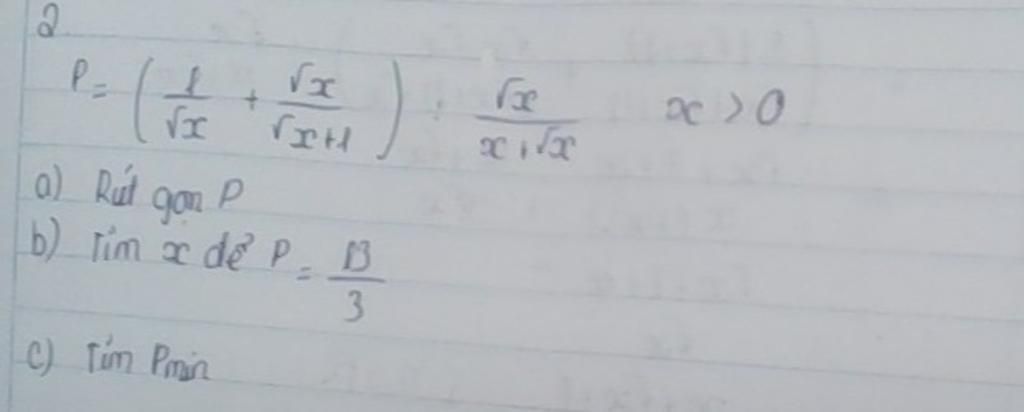 2
P = ( 1/√x + √x/√x+1 ) : √x/x+√x x > 0
a) Rút gọn P
b) Tìm x để P = 13/3
c) Tìm Pmin